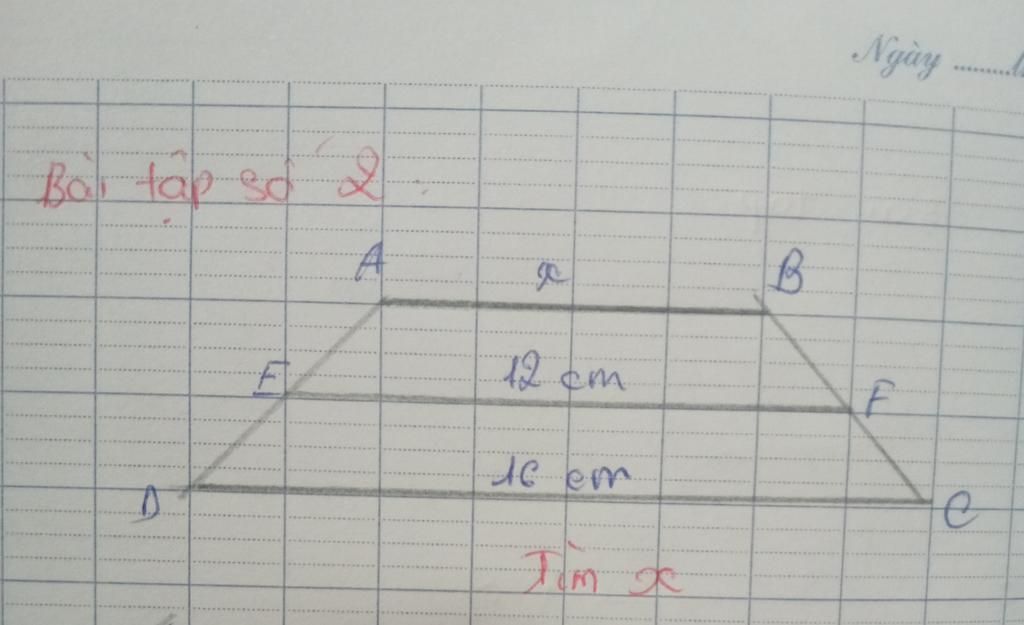 Ngày
Bài tập số 2
A x B
E 12 cm F
D 16 cm C
Tìm x